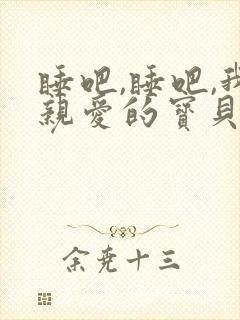 睡吧,睡吧,我
親愛的寶貝
余堯十三